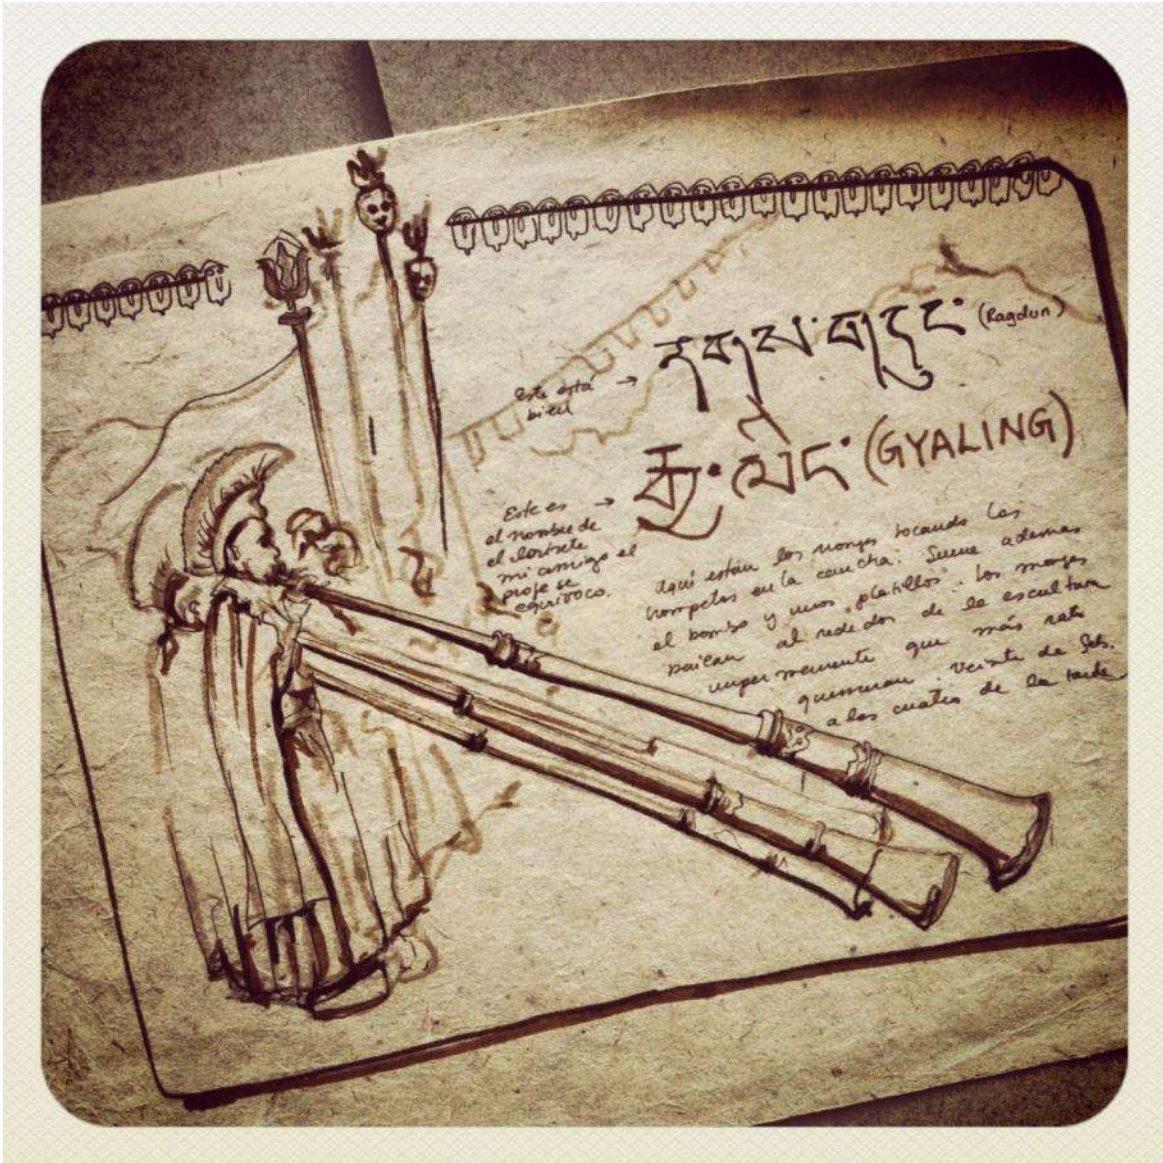 Este está →
bien
རགས་གདུང་ (Ragdun)
Este es →
el nombre de
el clarinete
mi amigo el
profe se
equivoco.
རྒྱ་ལིང་ (GYALING)
Aquí están los monjes tocando las
trompetas en la cancha. Suena ademas
el bombo y unos platillos. Los monjes
bailan al rededor de la escultura
impermanente que más rato
quemaran. Veinte de Feb.
a las cuatro de la tarde